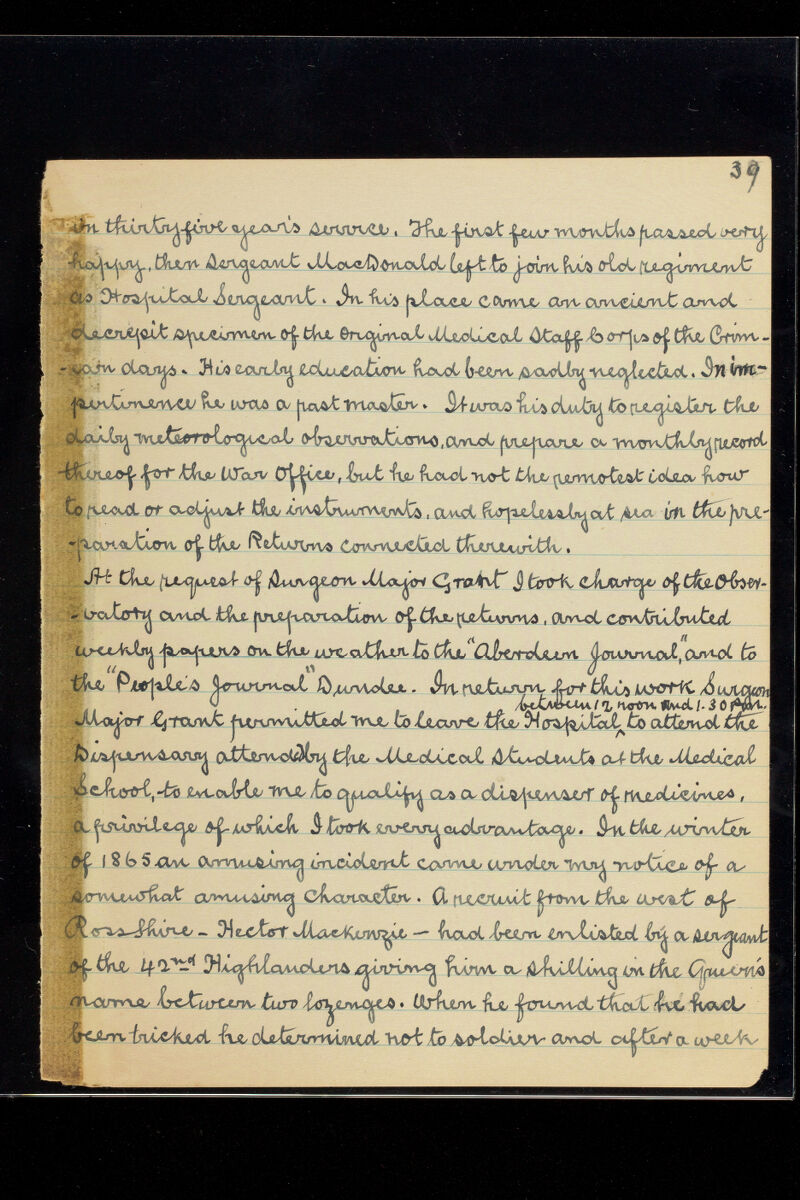 39
in thirtyfive year's service. The first few months passed very
happy, then Sergeant MacDonald left to join his old regiment
as Hospital Sergeant. In his place came an ancient and
decrepit specimen of the Original Medical Staff Corps of the Crim-
-ean days. His early education had been sadly neglected. In im-
pertinence he was a past master. It was his duty to register the
daily meteorological observations, and prepare a monthly record
thereof for the War Office, but he had not the remotest idea how
to read or adjust the instruments, and hopelessly at sea in the pre-
-paration of the Returns connected therewith.
At the request of Surgeon Major Grant I took charge of the Obser-
-vatory and the preparation of the returns, and contributed
weekly papers on the weather to the "Aberdeen Journal," and to
the "People's Journal" Dundee. In return for this work Surgeon
between 12 noon and 1.30 P.m.
Major Grant permitted me to leave the Hospital ^ to attend the
Dispensary attended by the Medical Students at the Medical
School, to enable me to qualify as a dispenser of medicines,
a privilege of which I took every advantage. In the winter
of 1865 an amusing incident came under my notice of a
somewhat amusing character. A recruit from the west of
Ross Shire - Hector Mackenzie - had been enlisted by a sergeant
of the 42nd Highlanders giving him a shilling in the Queen's
name between two lozenges. When he found that he had
been tricked he determined not to soldier and after a week